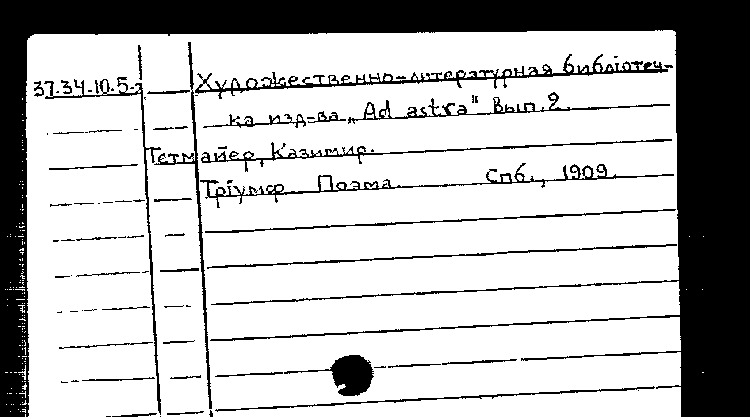 37.34.10.5-з Художественно-литературная библіотеч-
ка изд-ва „Ad astra" Вып. 2.
Тетмайер, Казимир.
Тріумф. Поэма. Спб., 1909.